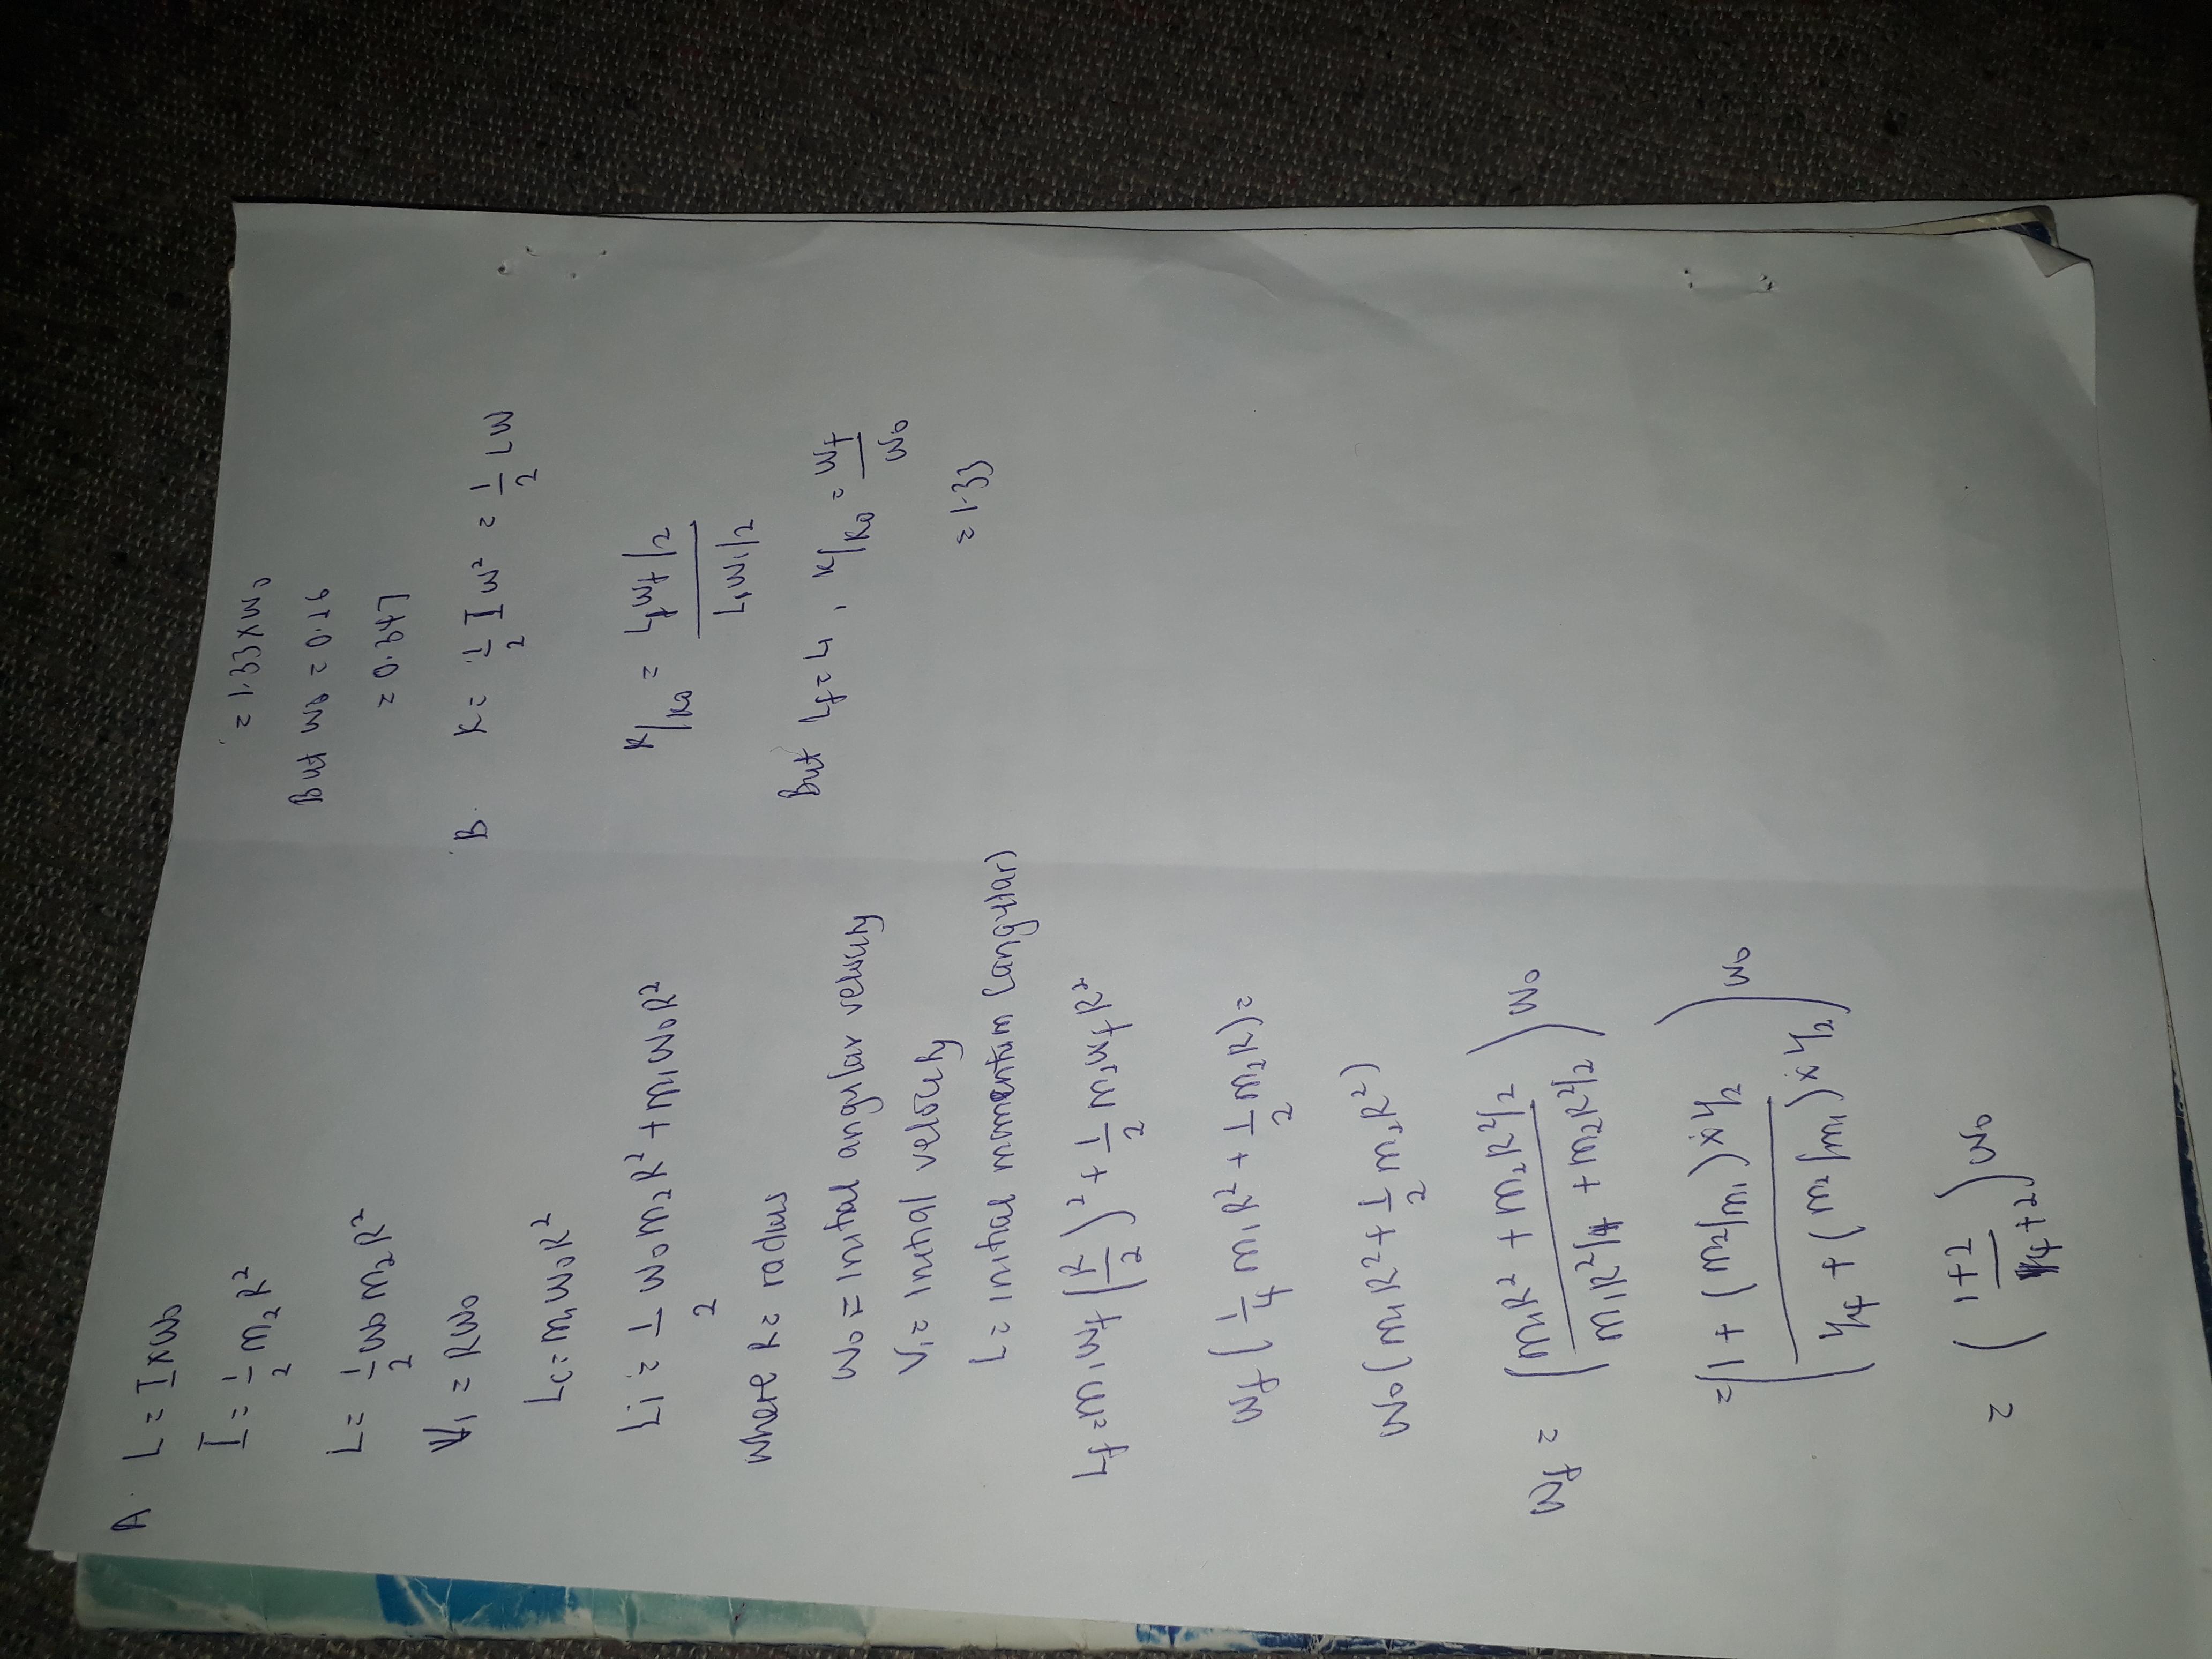 A. L = I×W₀
I = 1/2 m₂R²
L = 1/2 W₀m₂R²
V₁ = RW₀
Lc = m₁W₀R²
Li = 1/2 W₀m₂R² + m₁W₀R²
where R = radius
W₀ = initial angular velocity
Vi = initial velocity
L = initial momentum (angular)
Lf = m₁Wf (R/2)² + 1/2 m₂WfR²
Wf (1/4 m₁R² + 1/2 m₂R) =
W₀(m₁R² + 1/2 m₂R²)
Wf = (m₁R² + m₂R²/2 / m₁R²/4 + m₂R²/2) W₀
= (1 + (m₂/m₁) × 1/2 / 1/4 + (m₂/m₁) × 1/2) W₀
= (1+2 / 1/4+2) W₀
= 1.33×W₀
But W₀ = 0.26
= 0.347
B. K = 1/2 IW² = 1/2 LW
K/K₀ = LfWf/2 / LiWi/2
But Lf = Li, K/K₀ = Wf/W₀
= 1.33